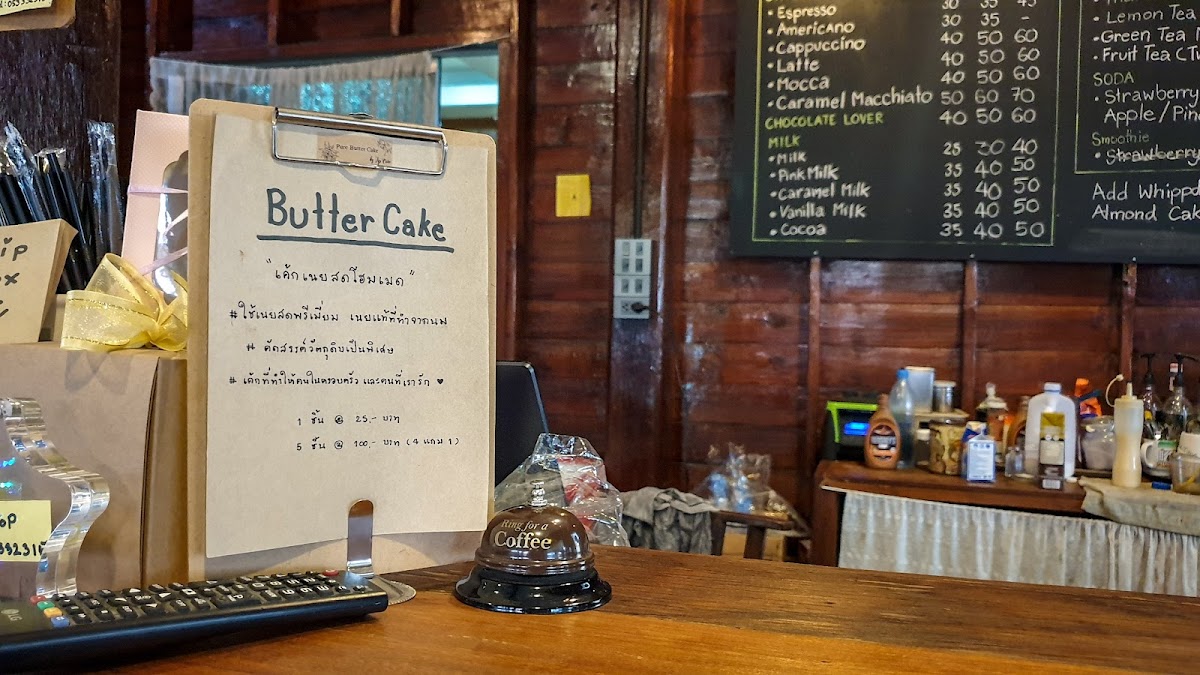 The Pure Butter Cake
Butter Cake
"เค้กเนยสดโฮมเมด"
#ใช้เนยสดพรีเมี่ยม เนยแท้ที่ทำจากนม
# คัดสรรค์วัตถุดิบเป็นพิเศษ
# เค้กที่ทำให้คนในครอบครัว และคนที่เรารัก ♥
1 ชิ้น @ 25.- บาท
5 ชิ้น @ 100.- บาท (4 แถม 1)
Ring for a
Coffee
LG
• Espresso 30 35 45
• Americano 30 35 -
• Cappuccino 40 50 60
• Latte 40 50 60
• Mocca 40 50 60
• Caramel Macchiato 50 60 70
CHOCOLATE LOVER 40 50 60
MILK
• Milk 25 30 40
• Pink Milk 35 40 50
• Caramel Milk 35 40 50
• Vanilla Milk 35 40 50
• Cocoa 35 40 50
• Lemon Tea
• Green Tea
• Fruit Tea
SODA
• Strawberry
Apple/
Smoothie
• Strawberry
Add
Almond